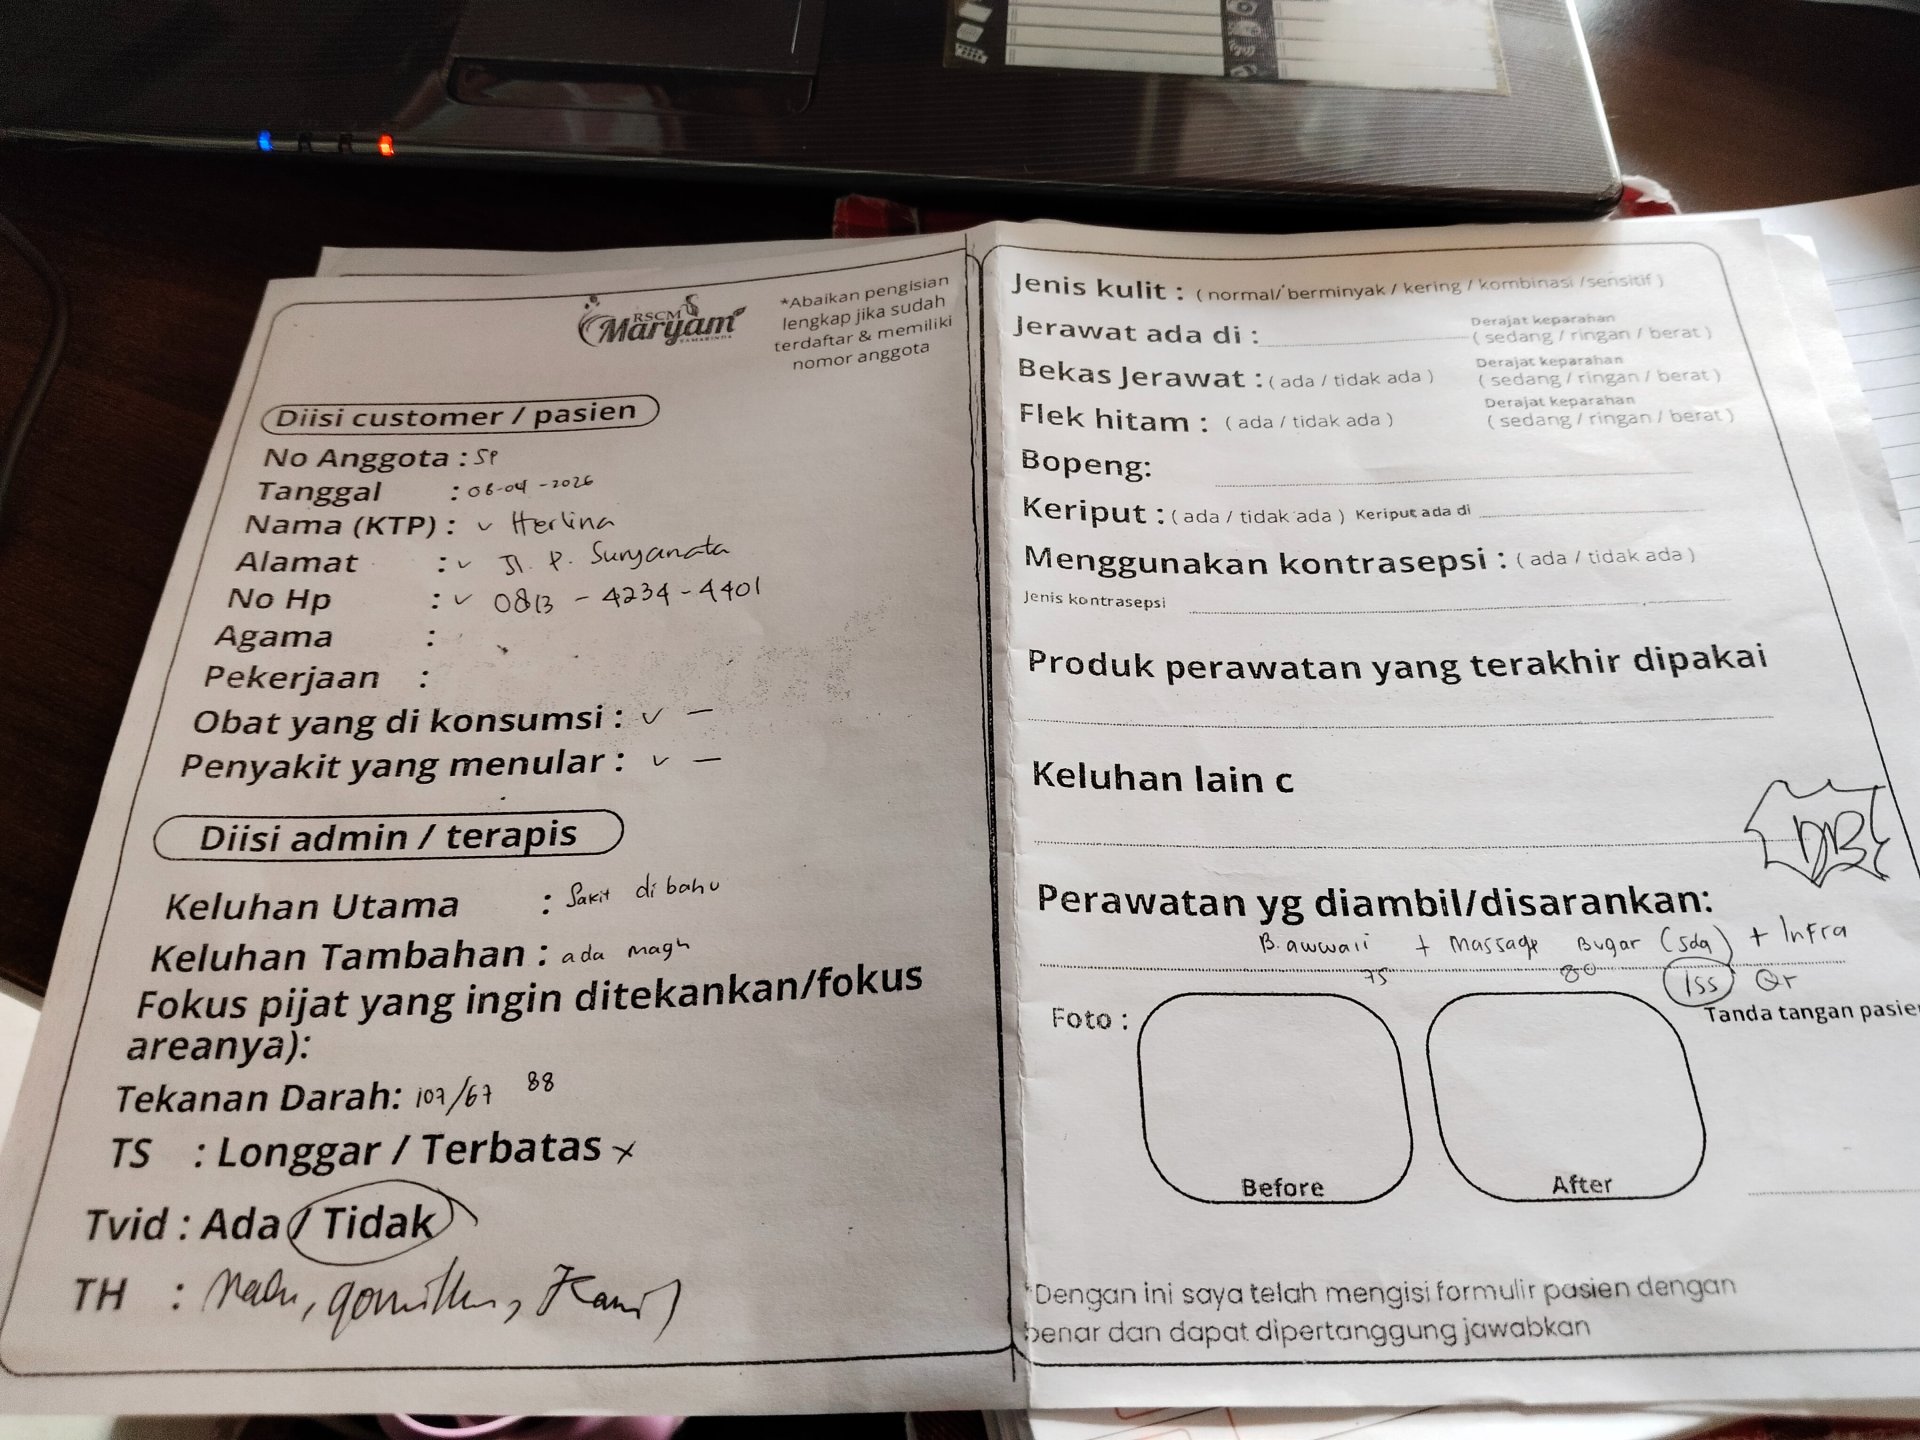 RSCM
Maryam
SAMARINDA
*Abaikan pengisian
lengkap jika sudah
terdaftar & memiliki
nomor anggota
Diisi customer / pasien
No Anggota : SP
Tanggal : 08-04-2026
Nama (KTP) : Herlina
Alamat : Jl. P. Suryanata
No Hp : 0813 - 4234 - 4401
Agama :
Pekerjaan :
Obat yang di konsumsi : —
Penyakit yang menular : —
Diisi admin / terapis
Keluhan Utama : Sakit di bahu
Keluhan Tambahan : ada magh
Fokus pijat yang ingin ditekankan/fokus
areanya):
Tekanan Darah: 107/67 88
TS : Longgar / Terbatas x
Tvid : Ada / Tidak
TH :
Jenis kulit : ( normal/ berminyak / kering / kombinasi /sensitif )
Jerawat ada di : Derajat keparahan
( sedang / ringan / berat )
Bekas Jerawat : ( ada / tidak ada ) Derajat keparahan
( sedang / ringan / berat )
Flek hitam : ( ada / tidak ada ) Derajat keparahan
( sedang / ringan / berat )
Bopeng:
Keriput : ( ada / tidak ada ) Keriput ada di
Menggunakan kontrasepsi : ( ada / tidak ada )
Jenis kontrasepsi
Produk perawatan yang terakhir dipakai
Keluhan lain c
DB
Perawatan yg diambil/disarankan:
B. awwali + Massage Bugar (sda) + Infra
75 80 155 Qr
Foto :
Tanda tangan pasie
Before
After
*Dengan ini saya telah mengisi formulir pasien dengan
benar dan dapat dipertanggung jawabkan